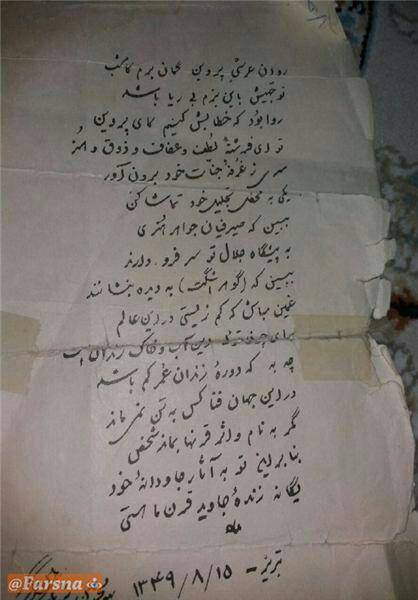 روان عرشی پروین گمان برم کامشب
توجهش باین بزم بی ریا باشد
روا بود که خطابش کنیم کای پروین
تو ای فرشتهٔ لطف و عفاف و ذوق و هنر
سری ز غرفهٔ جنات خود برون آور
یکی به محفل تجلیل خود تماشا کن
ببین که صیرفیان جواهر هنری
به پیشگاه جلال تو سر فرود دارند
ببین که (گوهر اشکت) به دیده بنشانند
غمین مباش که کم زیستی در این عالم
برای چون تو این آب و خاک زندان است
چه به که دورهٔ زندان عمر کم باشد
در این جهان فنا کس به تن نمی ماند
مگر به نام و اثر قرنها بماند شخص
بنابراین تو به آثار جاودانهٔ خود
یگانه زندهٔ جاوید قرن ما استی
تبریز - ۱۳۴۹/۸/۱۵
@Farsna